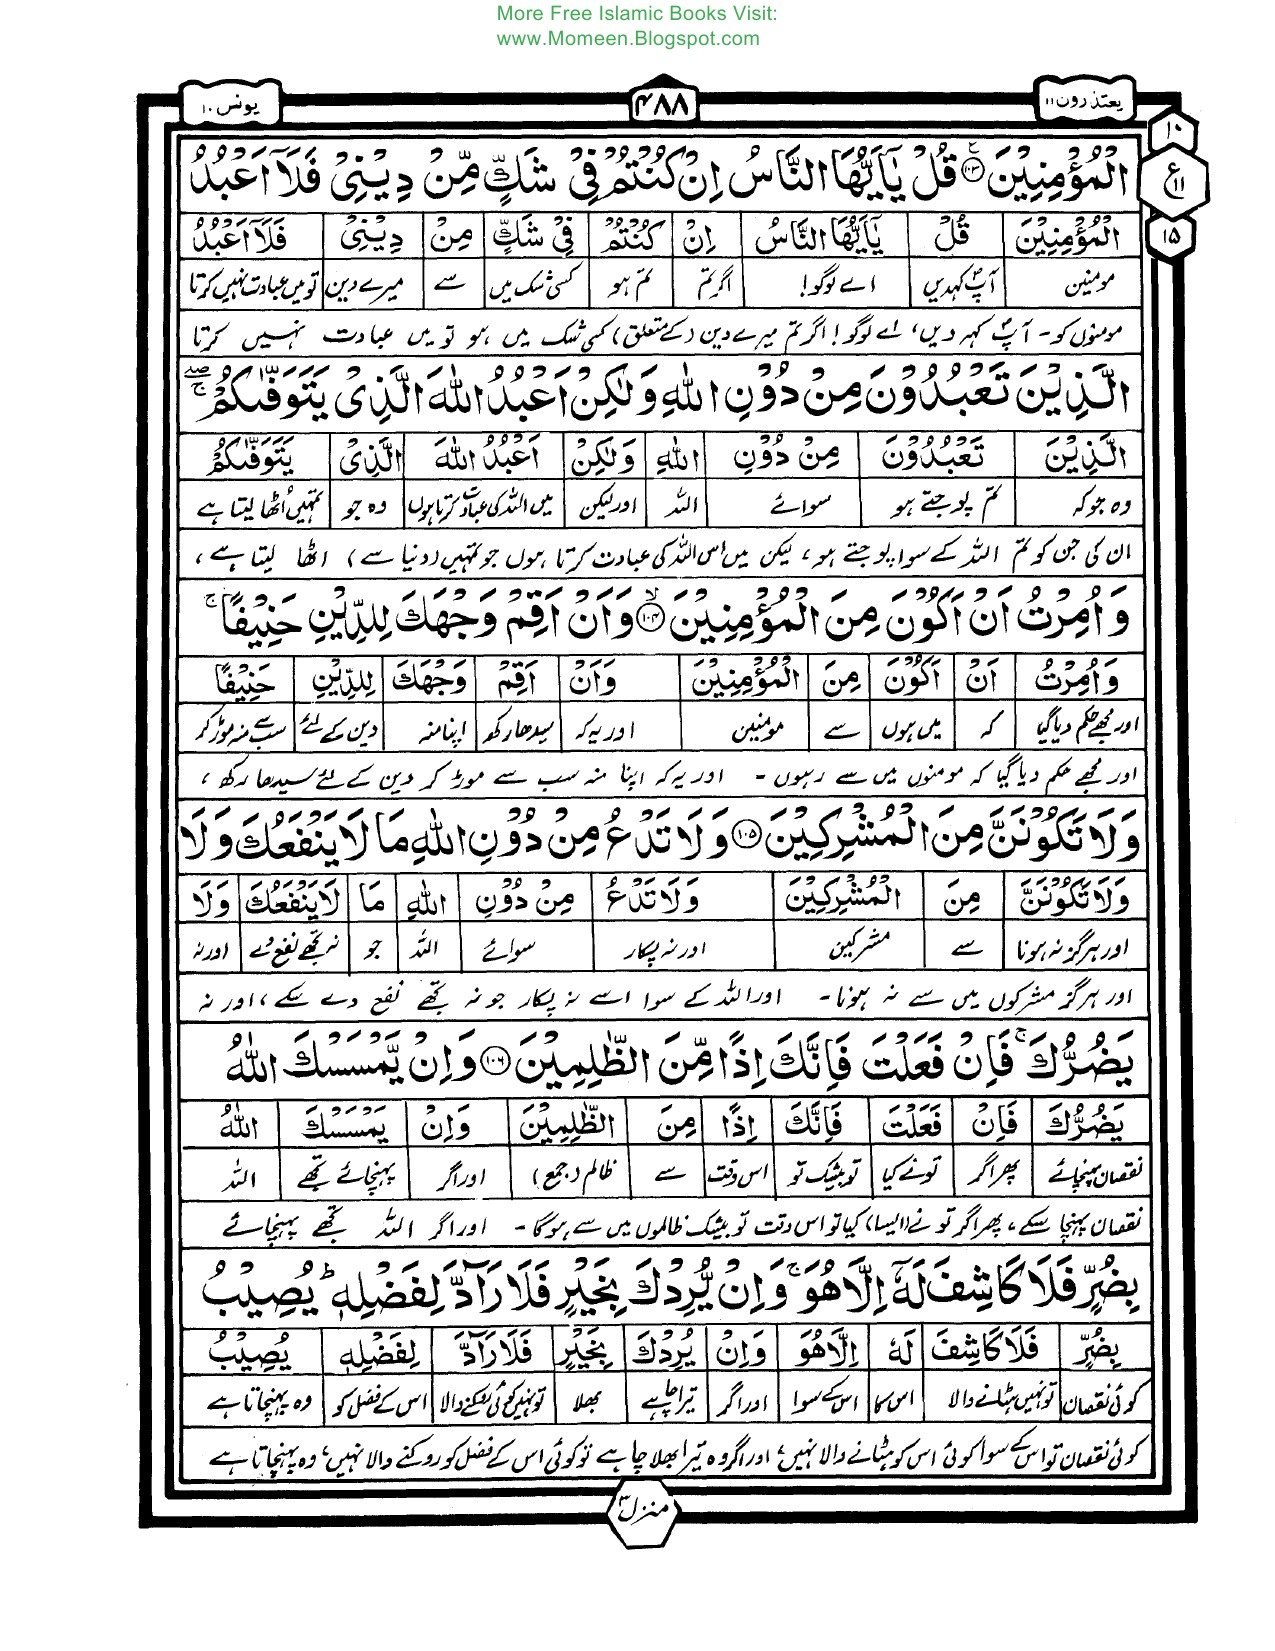 More Free Islamic Books Visit:
www.Momeen.Blogspot.com
یعتذرون ۱۱ ۴۸۸ یونس ۱۰
۱۰
ع ۱۱
۱۵
الْمُؤْمِنِیْنَ ۝۱۰۳ قُلْ یٰۤاَیُّهَا النَّاسُ اِنْ كُنْتُمْ فِیْ شَكٍّ مِّنْ دِیْنِیْ فَلَاۤ اَعْبُدُ
الْمُؤْمِنِیْنَ قُلْ یٰۤاَیُّهَا النَّاسُ اِنْ كُنْتُمْ فِیْ شَكٍّ مِنْ دِیْنِیْ فَلَاۤ اَعْبُدُ
مومنین آپؐ کہدیں اے لوگو! اگر تم تم ہو کسی شک میں سے میرے دین تو میں عبادت نہیں کرتا
مومنوں کو۔ آپؐ کہہ دیں، اے لوگو! اگر تم میرے دین (کے متعلق) کسی شک میں ہو تو میں عبادت نہیں کرتا
الَّذِیْنَ تَعْبُدُوْنَ مِنْ دُوْنِ اللّٰهِ وَلٰكِنْ اَعْبُدُ اللّٰهَ الَّذِیْ یَتَوَفّٰىكُمْ ۖۚ
الَّذِیْنَ تَعْبُدُوْنَ مِنْ دُوْنِ اللّٰهِ وَلٰكِنْ اَعْبُدُ اللّٰهَ الَّذِیْ یَتَوَفّٰىكُمْ
وہ جو کہ تم پوجتے ہو سوائے اللہ اور لیکن میں اللہ کی عبادت کرتا ہوں وہ جو تمہیں اُٹھا لیتا ہے
ان کی جن کو تم اللہ کے سوا پوجتے ہو، لیکن میں اس اللہ کی عبادت کرتا ہوں جو تمہیں (دنیا سے) اٹھا لیتا ہے،
وَاُمِرْتُ اَنْ اَكُوْنَ مِنَ الْمُؤْمِنِیْنَ ۝۱۰۴ۙ وَاَنْ اَقِمْ وَجْهَكَ لِلدِّیْنِ حَنِیْفًا ۚ
وَاُمِرْتُ اَنْ اَكُوْنَ مِنَ الْمُؤْمِنِیْنَ وَاَنْ اَقِمْ وَجْهَكَ لِلدِّیْنِ حَنِیْفًا
اور مجھے حکم دیا گیا کہ میں ہوں سے مومنین اور یہ کہ سیدھا رکھ اپنا منہ دین کے لئے سب سے منہ موڑ کر
اور مجھے حکم دیا گیا کہ مومنوں میں سے رہوں۔ اور یہ کہ اپنا منہ سب سے موڑ کر دین کے لئے سیدھا رکھ،
وَلَا تَكُوْنَنَّ مِنَ الْمُشْرِكِیْنَ ۝۱۰۵ وَلَا تَدْعُ مِنْ دُوْنِ اللّٰهِ مَا لَا یَنْفَعُكَ وَلَا
وَلَا تَكُوْنَنَّ مِنَ الْمُشْرِكِیْنَ وَلَا تَدْعُ مِنْ دُوْنِ اللّٰهِ مَا لَا یَنْفَعُكَ وَلَا
اور ہرگز نہ ہونا سے مشرکین اور نہ پکار سوائے اللہ جو نہ تجھے نفع دے اور نہ
اور ہرگز مشرکوں میں سے نہ ہونا۔ اور اللہ کے سوا اسے نہ پکار جو نہ تجھے نفع دے سکے، اور نہ
یَضُرُّكَ ۚ فَاِنْ فَعَلْتَ فَاِنَّكَ اِذًا مِّنَ الظّٰلِمِیْنَ ۝۱۰۶ وَاِنْ یَّمْسَسْكَ اللّٰهُ
یَضُرُّكَ فَاِنْ فَعَلْتَ فَاِنَّكَ اِذًا مِنَ الظّٰلِمِیْنَ وَاِنْ یَمْسَسْكَ اللّٰهُ
نقصان پہنچائے پھر اگر تونے کیا تو بیشک تو اس وقت سے ظالم (جمع) اور اگر پہنچائے تجھے اللہ
نقصان پہنچا سکے، پھر اگر تو نے (ایسا) کیا تو اس وقت تو بیشک ظالموں میں سے ہوگا۔ اور اگر اللہ تجھے پہنچائے
بِضُرٍّ فَلَا كَاشِفَ لَهٗۤ اِلَّا هُوَ ۚ وَاِنْ یُّرِدْكَ بِخَیْرٍ فَلَا رَآدَّ لِفَضْلِهٖ ؕ یُصِیْبُ
بِضُرٍّ فَلَا كَاشِفَ لَهٗ اِلَّا هُوَ وَاِنْ یُرِدْكَ بِخَیْرٍ فَلَا رَآدَّ لِفَضْلِهٖ یُصِیْبُ
کوئی نقصان تو نہیں ہٹانے والا اس کا اس کے سوا اور اگر تیرا چاہے بھلا تو نہیں کوئی روکنے والا اس کے فضل کو وہ پہنچاتا ہے
کوئی نقصان تو اس کے سوا کوئی اس کو ہٹانے والا نہیں، اور اگر وہ تیرا بھلا چاہے تو کوئی اس کے فضل کو روکنے والا نہیں، وہ پہنچاتا ہے
منزل ۳